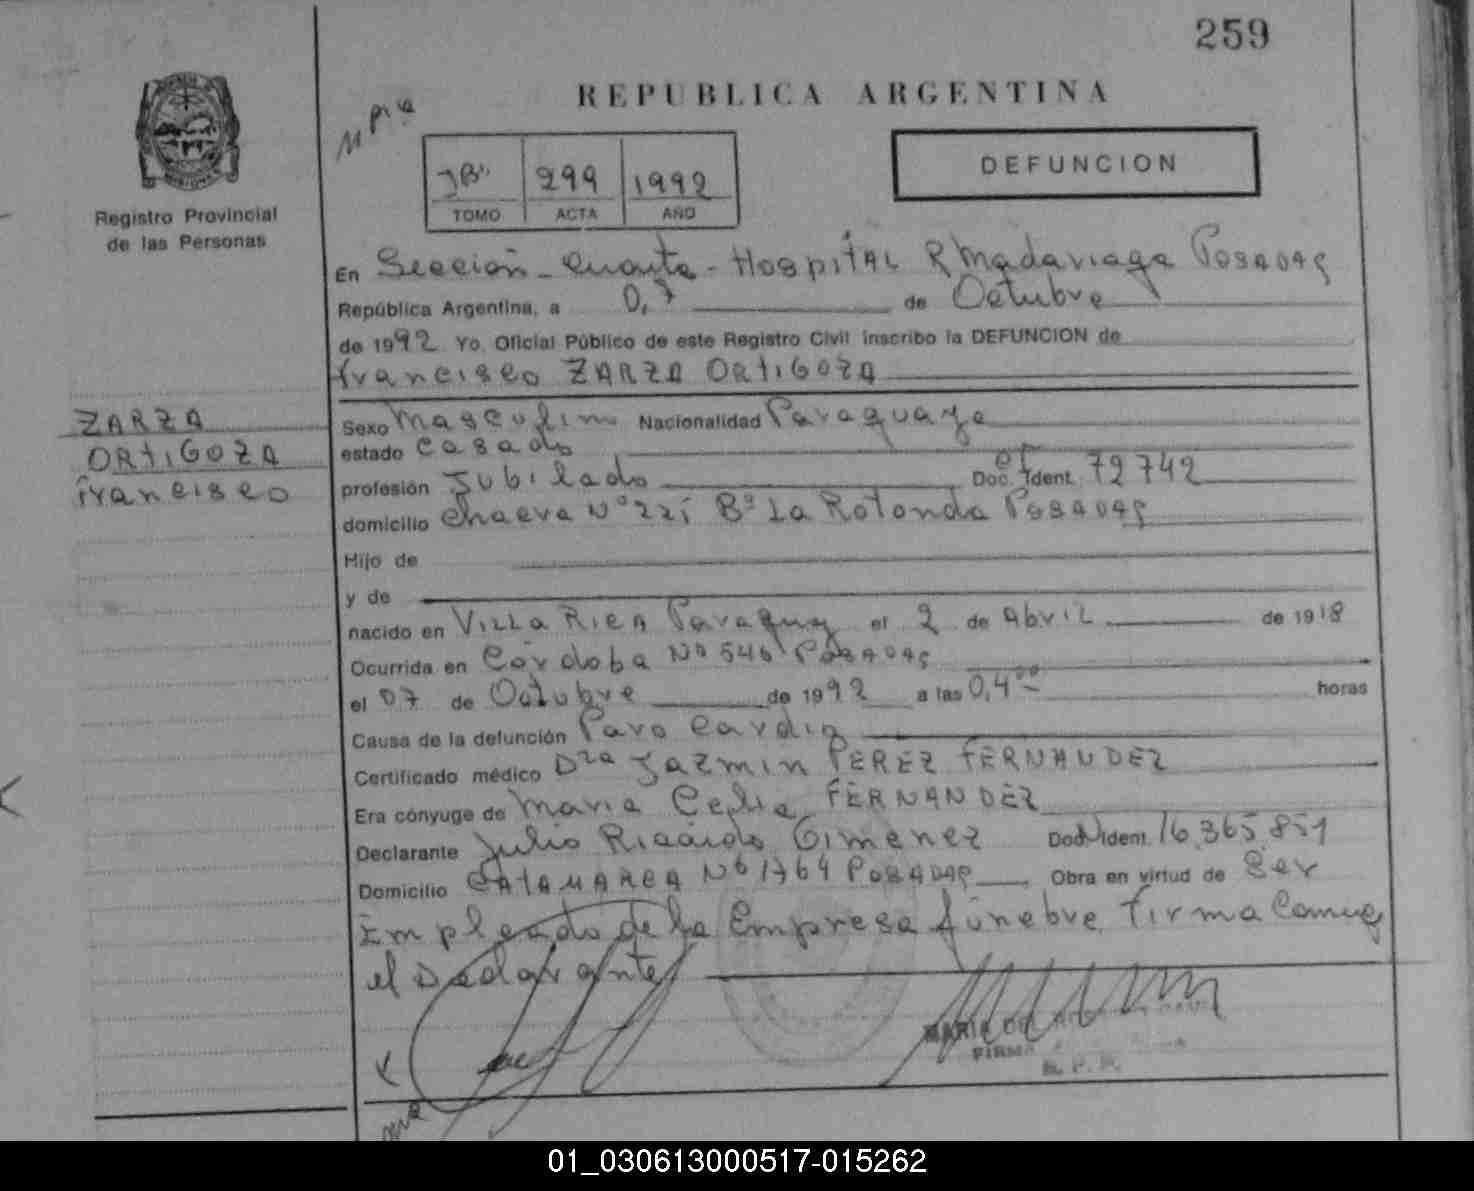 259
REPUBLICA ARGENTINA
DEFUNCION
299 1992
TOMO ACTA AÑO
Registro Provincial
de las Personas
En Sección Cuarta - Hospital R Madariaga Posadas
República Argentina, a 0,7 de Octubre
de 1992 Yo, Oficial Público de este Registro Civil inscribo la DEFUNCION de
Francisco ZARZA ORTIGOZA
ZARZA
ORTIGOZA
Francisco
Sexo Masculino Nacionalidad Paraguaya
estado Casado
profesión Jubilado Doc. Ident. 72742
domicilio Chacra Nº 221 Bº La Rotonda Posadas
Hijo de
y de
nacido en Villa Rica Paraguay el 2 de Abril de 1918
Ocurrida en Córdoba Nº 546 Posadas
el 07 de Octubre de 1992 a las 0,4 horas
Causa de la defunción Paro Cardio
Certificado médico Dra Jazmin PEREZ FERNANDEZ
Era cónyuge de Maria Celia FERNANDEZ
Declarante Julio Ricardo Gimenez Doc. Ident. 16,365,851
Domicilio CATAMARCA Nº 1764 Posadas Obra en virtud de Ser
Empleado de la Empresa fúnebre. Firma
el Declarante
MARIA
FIRMA
R. P. P.
01_030613000517-015262